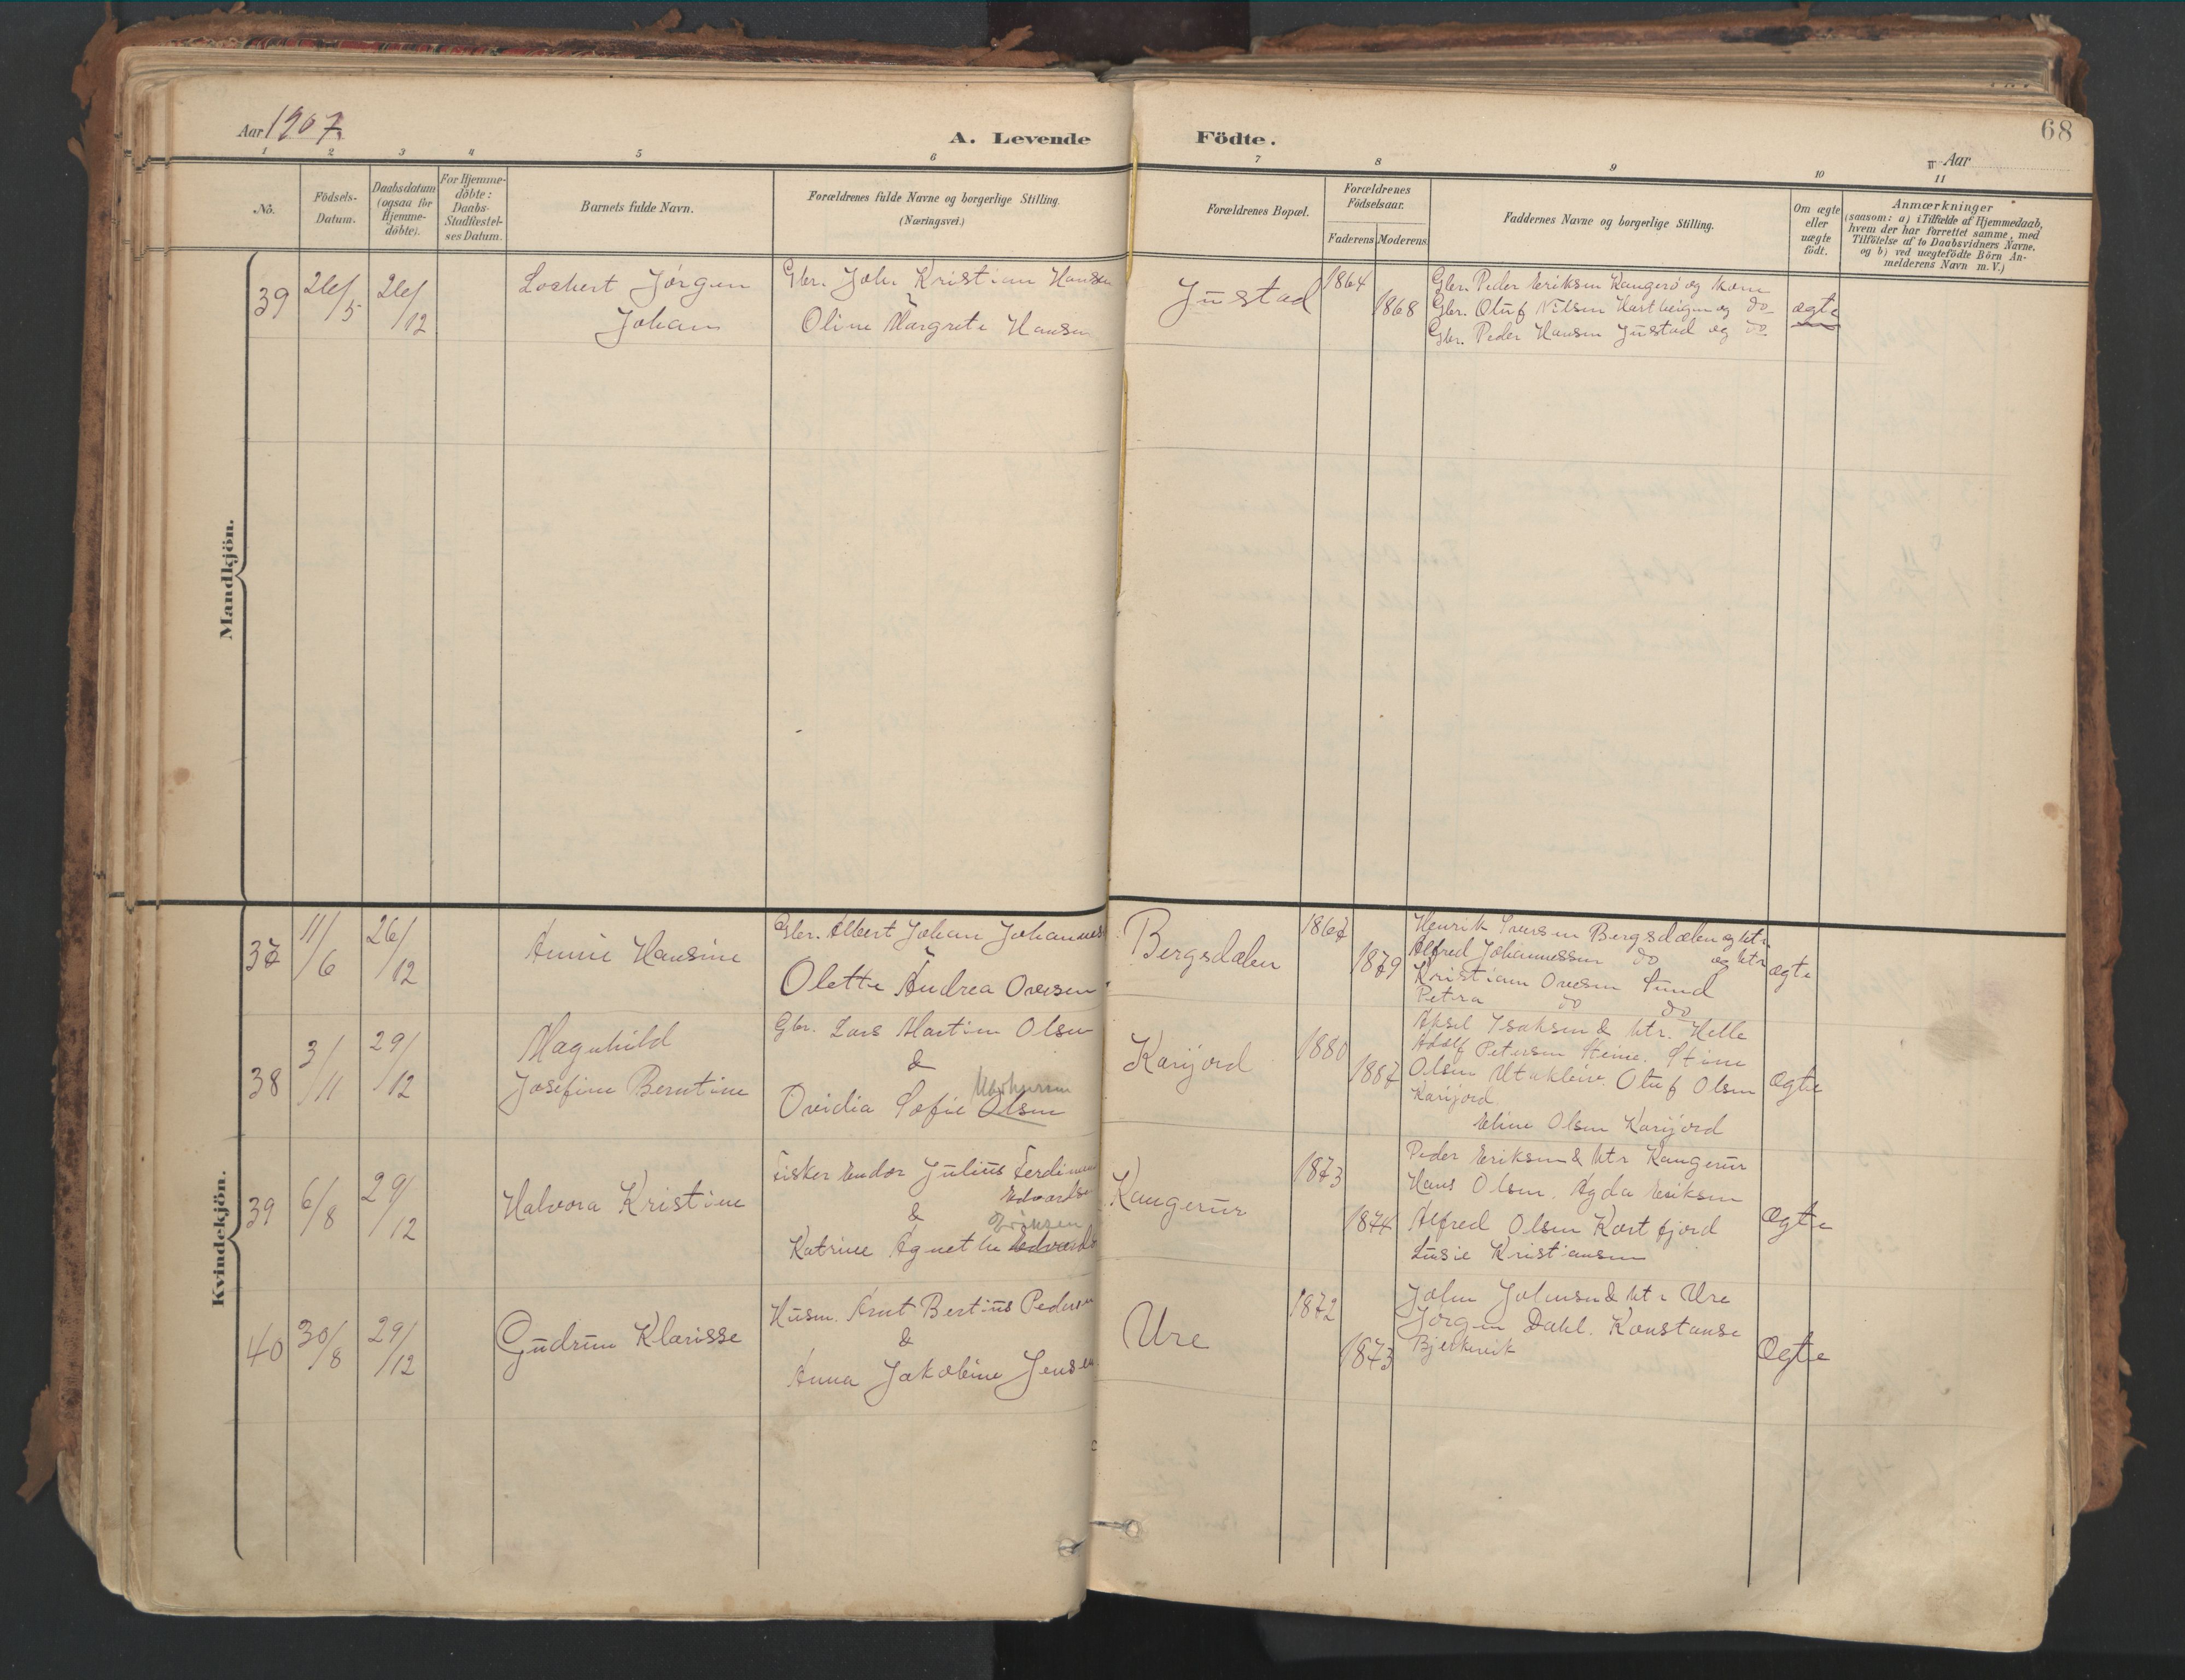 Aar 1907.
A. Levende Födte.
68
Aar
1 2 3 4 5 6 7 8 9 10 11
No.
Födsels-
Datum.
Daabsdatum
(ogsaa for
Hjemme-
döbte).
For Hjemme-
döbte:
Daabs-
Stadfæstel-
ses Datum.
Barnets fulde Navn.
Forældrenes fulde Navne og borgerlige Stilling.
(Næringsvei.)
Forældrenes Bopæl.
Forældrenes
Födselsaar.
Faderens Moderens
Faddernes Navne og borgerlige Stilling.
Om ægte
eller
uægte
födt.
Anmærkninger
(saasom: a) i Tilfælde af Hjemmedaab,
hvem der har forrettet samme, med
Tilföielse af to Daabsvidners Navne,
og b) ved uægtefödte Börn An-
melderens Navn m. V.)
Mandkjön.
39
26/5
26/12
Jørgen
Johan
Gbr. John Kristian Hansen
Oline Margrete Hansen
Justad
1864
1868
Gbr. Peder Eriksen Kangerø og kone
Gbr. Oluf Nilsen Hartbeigen og do
Gbr. Peder Hansen Justad og do
ægte
Kvindekjön.
37
11/6
26/12
Annie Hansine
Gbr. Albert Johan Johannes
&
Olette Andrea Ovesen
Bergsdalen
1867
1879
Henrik Iversen Bergsdalen og ktr.
Alfred Johannessen do og ktr
Kristian Ovesen Sund
Petra do do
ægte
38
3/11
29/12
Magnhild
Josefine Berntine
Gbr. Lars Martin Olsen
&
Ovidia Sofie Olsen
Karijord
1880
1887
Aksel Isaksen & ktr. Helle
Adolf Petersen Steine. Stine
Olsen Utakleiv. Oluf Olsen
Karijord
Eline Olsen Karijord
Ægte
39
6/8
29/12
Halvora Kristine
Fisker Endor Julius Ferdinand
Edvards
&
Eriksen
Katrine Agnethe Edvards
Kangerur
1873
1874
Peder Eriksen & ktr Kangerur
Hans Olsen. Agda Eriksen
Alfred Olsen Kartfjord
Lusie Kristiansen
Ægte
40
30/8
29/12
Gudrun Klarisse
Husm. Arnt Bertius Pedersen
&
Anna Jakobine Jensen
Ure
1872
1873
John Johnsen & ktr Ure
Jørgen Dahl. Konstanse
Bjerkvik
Ægte